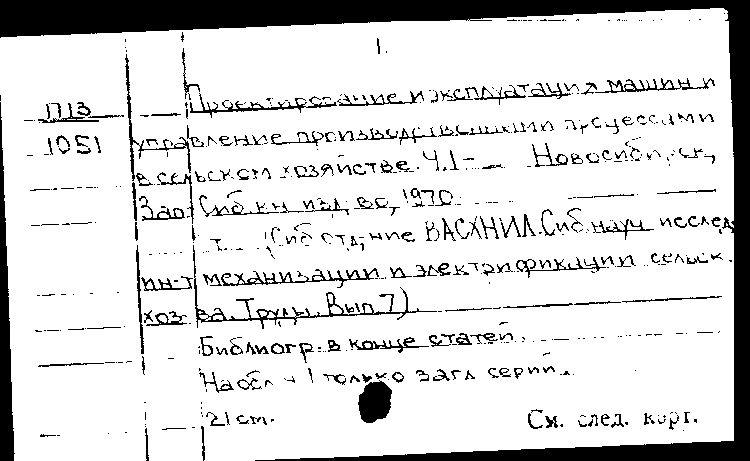 1.
П13 Проектирование и эксплуатация машин и
1051 управление производственными процессами
в сельском хозяйстве. Ч.1-  Новосибирск,
Зап.-Сиб. кн. изд-во, 1970.
т. (Сиб. отд-ние ВАСХНИЛ. Сиб. науч. исслед.
ин-т механизации и электрификации сельск.
хоз-ва. Труды. Вып. 7).
Библиогр. в конце статей.
На обл. ч 1 только загл. серии.
21 cm.
См. след. карт.